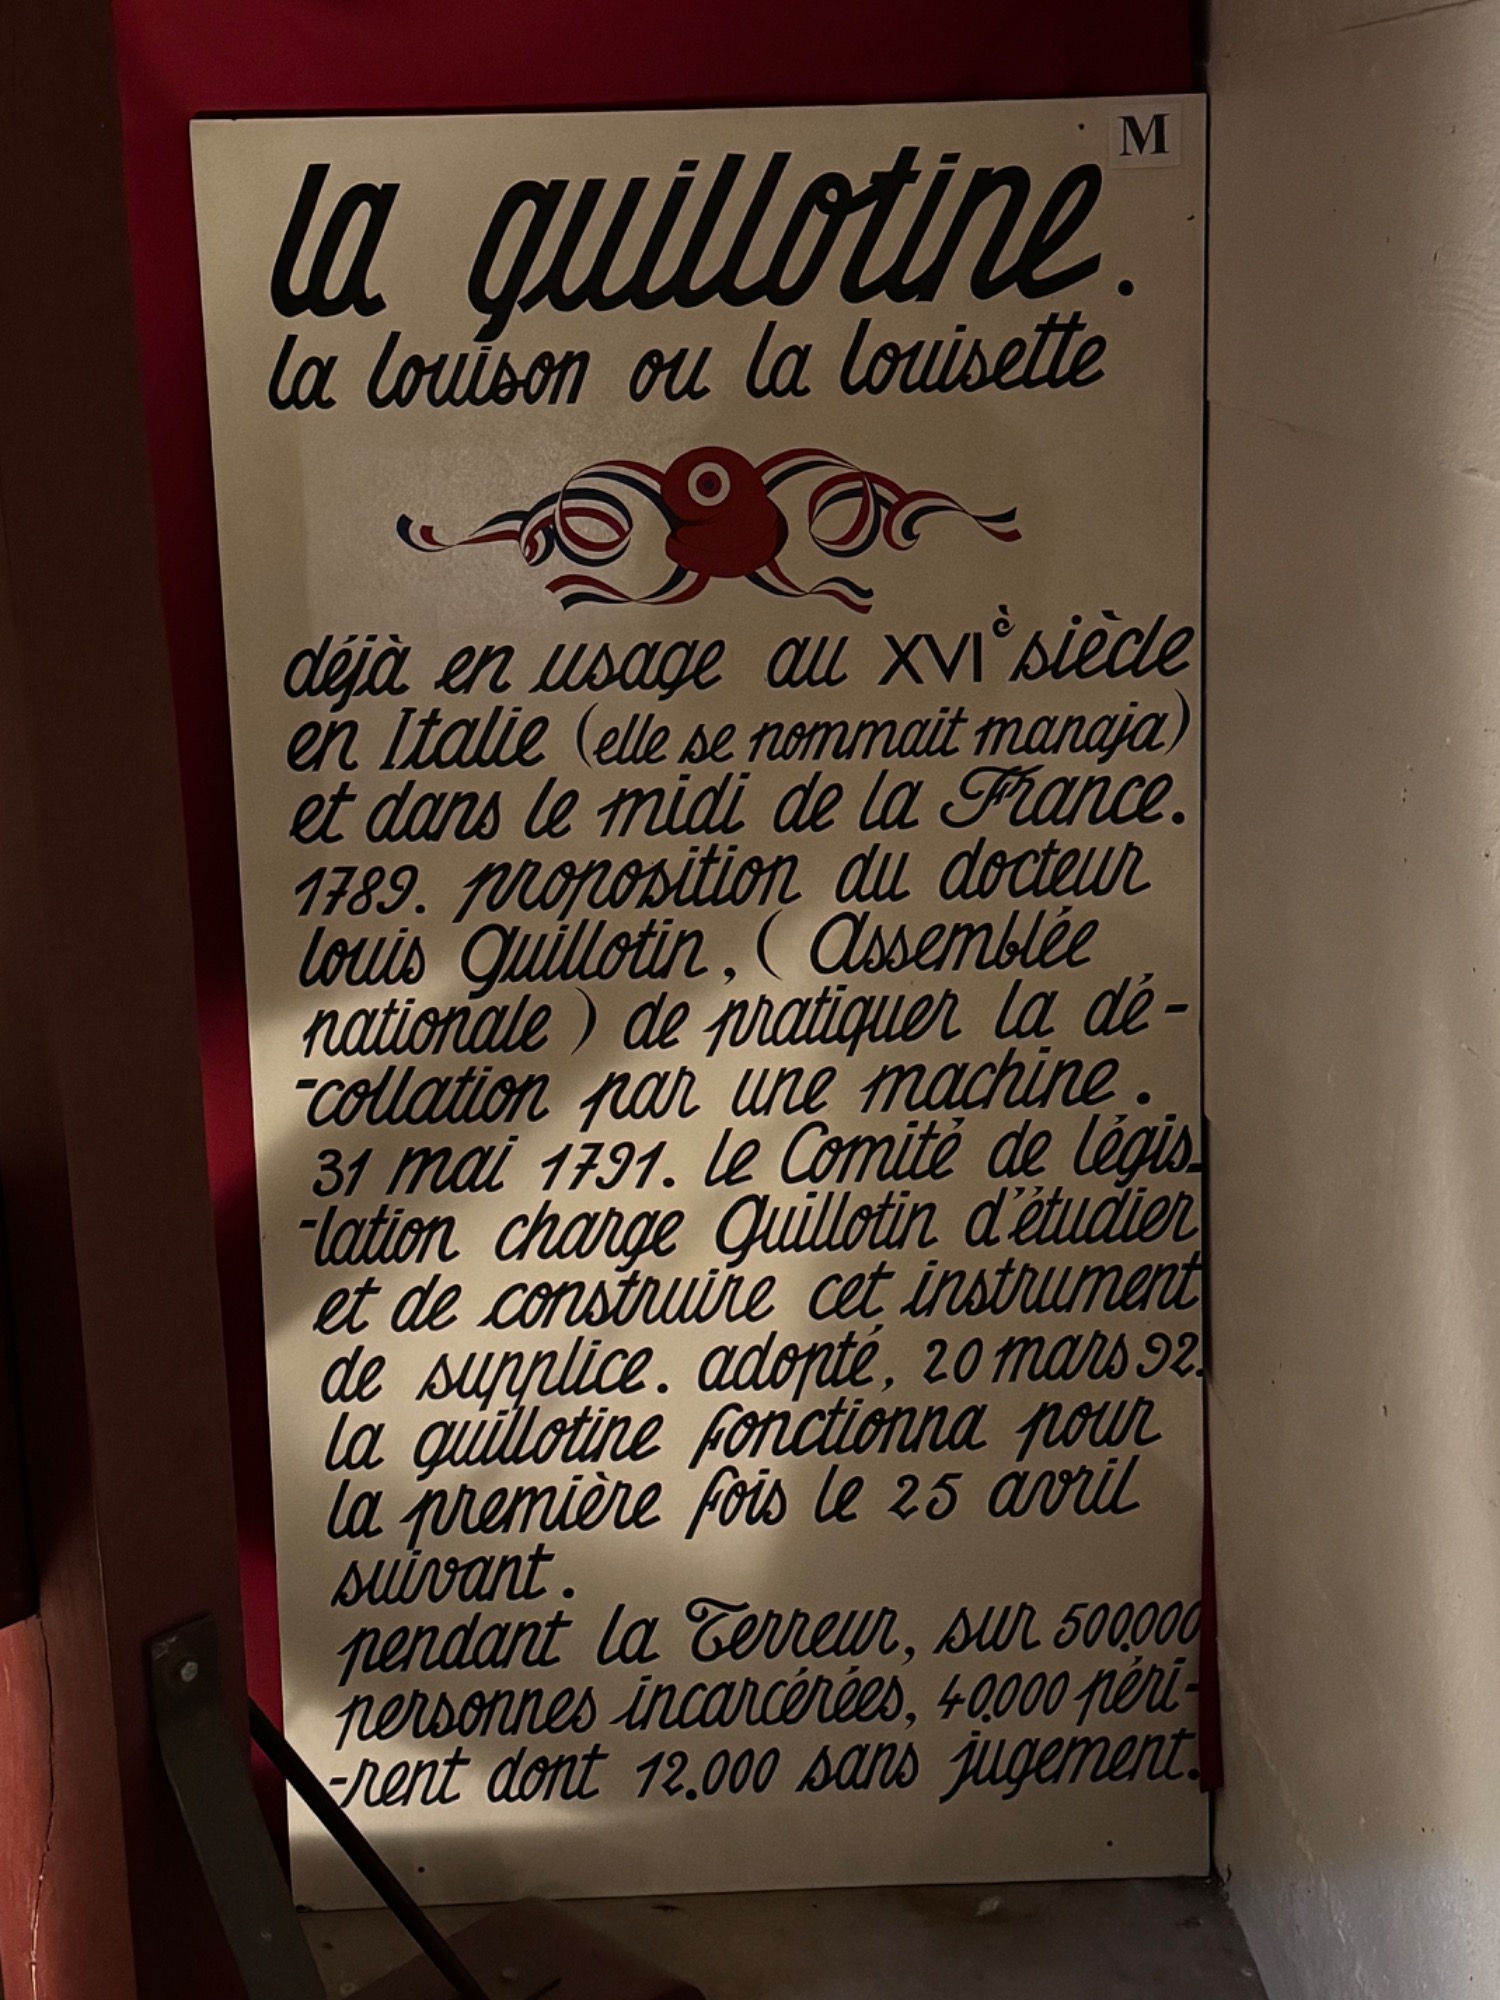 M
la guillotine.
la louison ou la louisette
déjà en usage au XVIè siècle
en Italie (elle se nommait manaja)
et dans le midi de la France.
1789. proposition du docteur
louis Guillotin, (Assemblée
nationale) de pratiquer la dé-
-collation par une machine.
31 mai 1791. le Comité de légis-
-lation charge Guillotin d'étudier
et de construire cet instrument
de supplice. adopté, 20 mars 92.
la guillotine fonctionna pour
la première fois le 25 avril
suivant.
pendant la Terreur, sur 500.000
personnes incarcérées, 40.000 péri-
-rent dont 12.000 sans jugement.